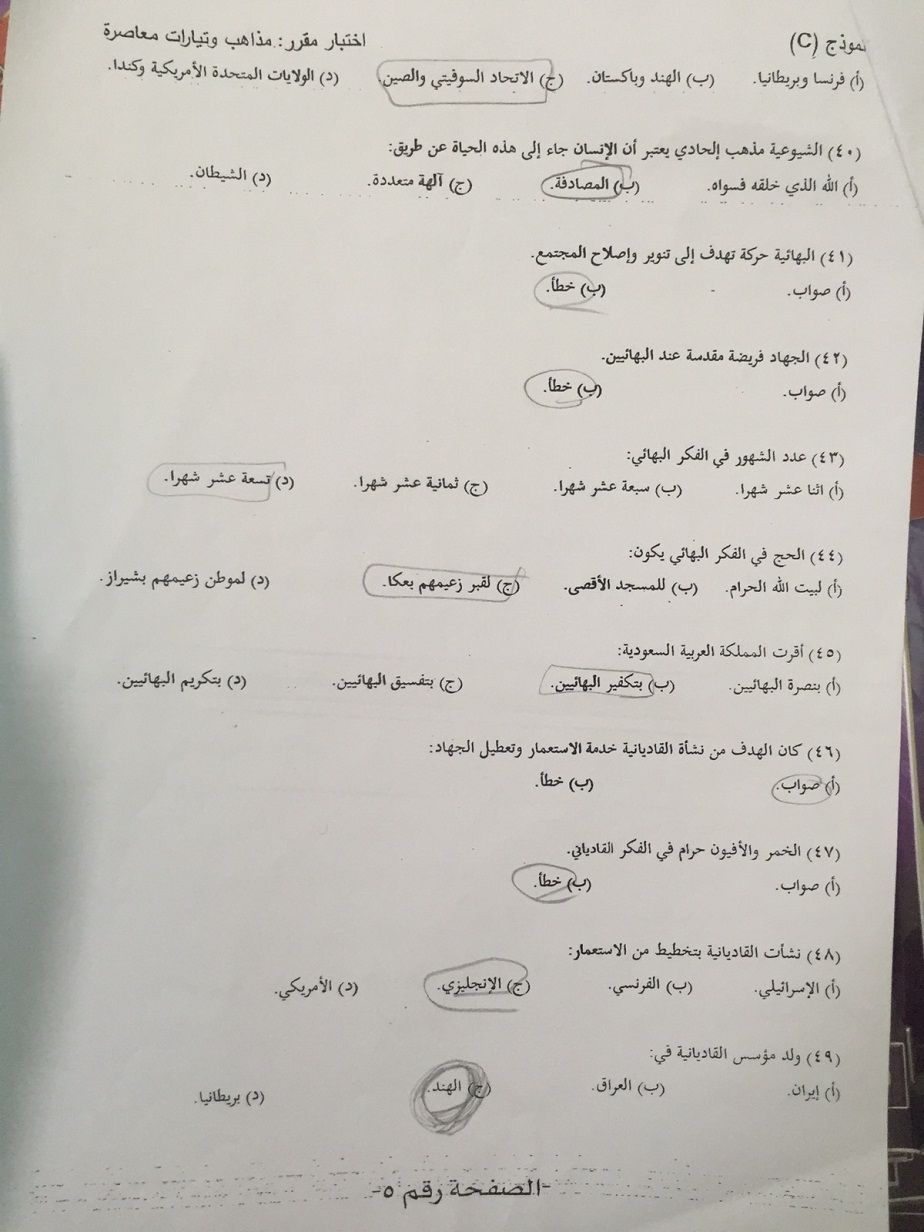 نموذج (C) اختبار مقرر: مذاهب وتيارات معاصرة
(أ) فرنسا وبريطانيا. (ب) الهند وباكستان. (ج) الاتحاد السوفيتي والصين. (د) الولايات المتحدة الأمريكية وكندا.
(٤٠) الشيوعية مذهب إلحادي يعتبر أن الإنسان جاء إلى هذه الحياة عن طريق:
(أ) الله الذي خلقه فسواه. (ب) المصادفة. (ج) آلهة متعددة. (د) الشيطان.
(٤١) البهائية حركة تهدف إلى تنوير وإصلاح المجتمع.
(أ) صواب. (ب) خطأ.
(٤٢) الجهاد فريضة مقدسة عند البهائيين.
(أ) صواب. (ب) خطأ.
(٤٣) عدد الشهور في الفكر البهائي:
(أ) اثنا عشر شهرا. (ب) سبعة عشر شهرا. (ج) ثمانية عشر شهرا. (د) تسعة عشر شهرا.
(٤٤) الحج في الفكر البهائي يكون:
(أ) لبيت الله الحرام. (ب) للمسجد الأقصى. (ج) لقبر زعيمهم بعكا. (د) لموطن زعيمهم بشيراز.
(٤٥) أقرت المملكة العربية السعودية:
(أ) بنصرة البهائيين. (ب) بتكفير البهائيين. (ج) بتفسيق البهائيين. (د) بتكريم البهائيين.
(٤٦) كان الهدف من نشأة القاديانية خدمة الاستعمار وتعطيل الجهاد:
(أ) صواب. (ب) خطأ.
(٤٧) الخمر والأفيون حرام في الفكر القادياني.
(أ) صواب. (ب) خطأ.
(٤٨) نشأت القاديانية بتخطيط من الاستعمار:
(أ) الإسرائيلي. (ب) الفرنسي. (ج) الإنجليزي. (د) الأمريكي.
(٤٩) ولد مؤسس القاديانية في:
(أ) إيران. (ب) العراق. (ج) الهند. (د) بريطانيا.
-الصفحة رقم ٥-